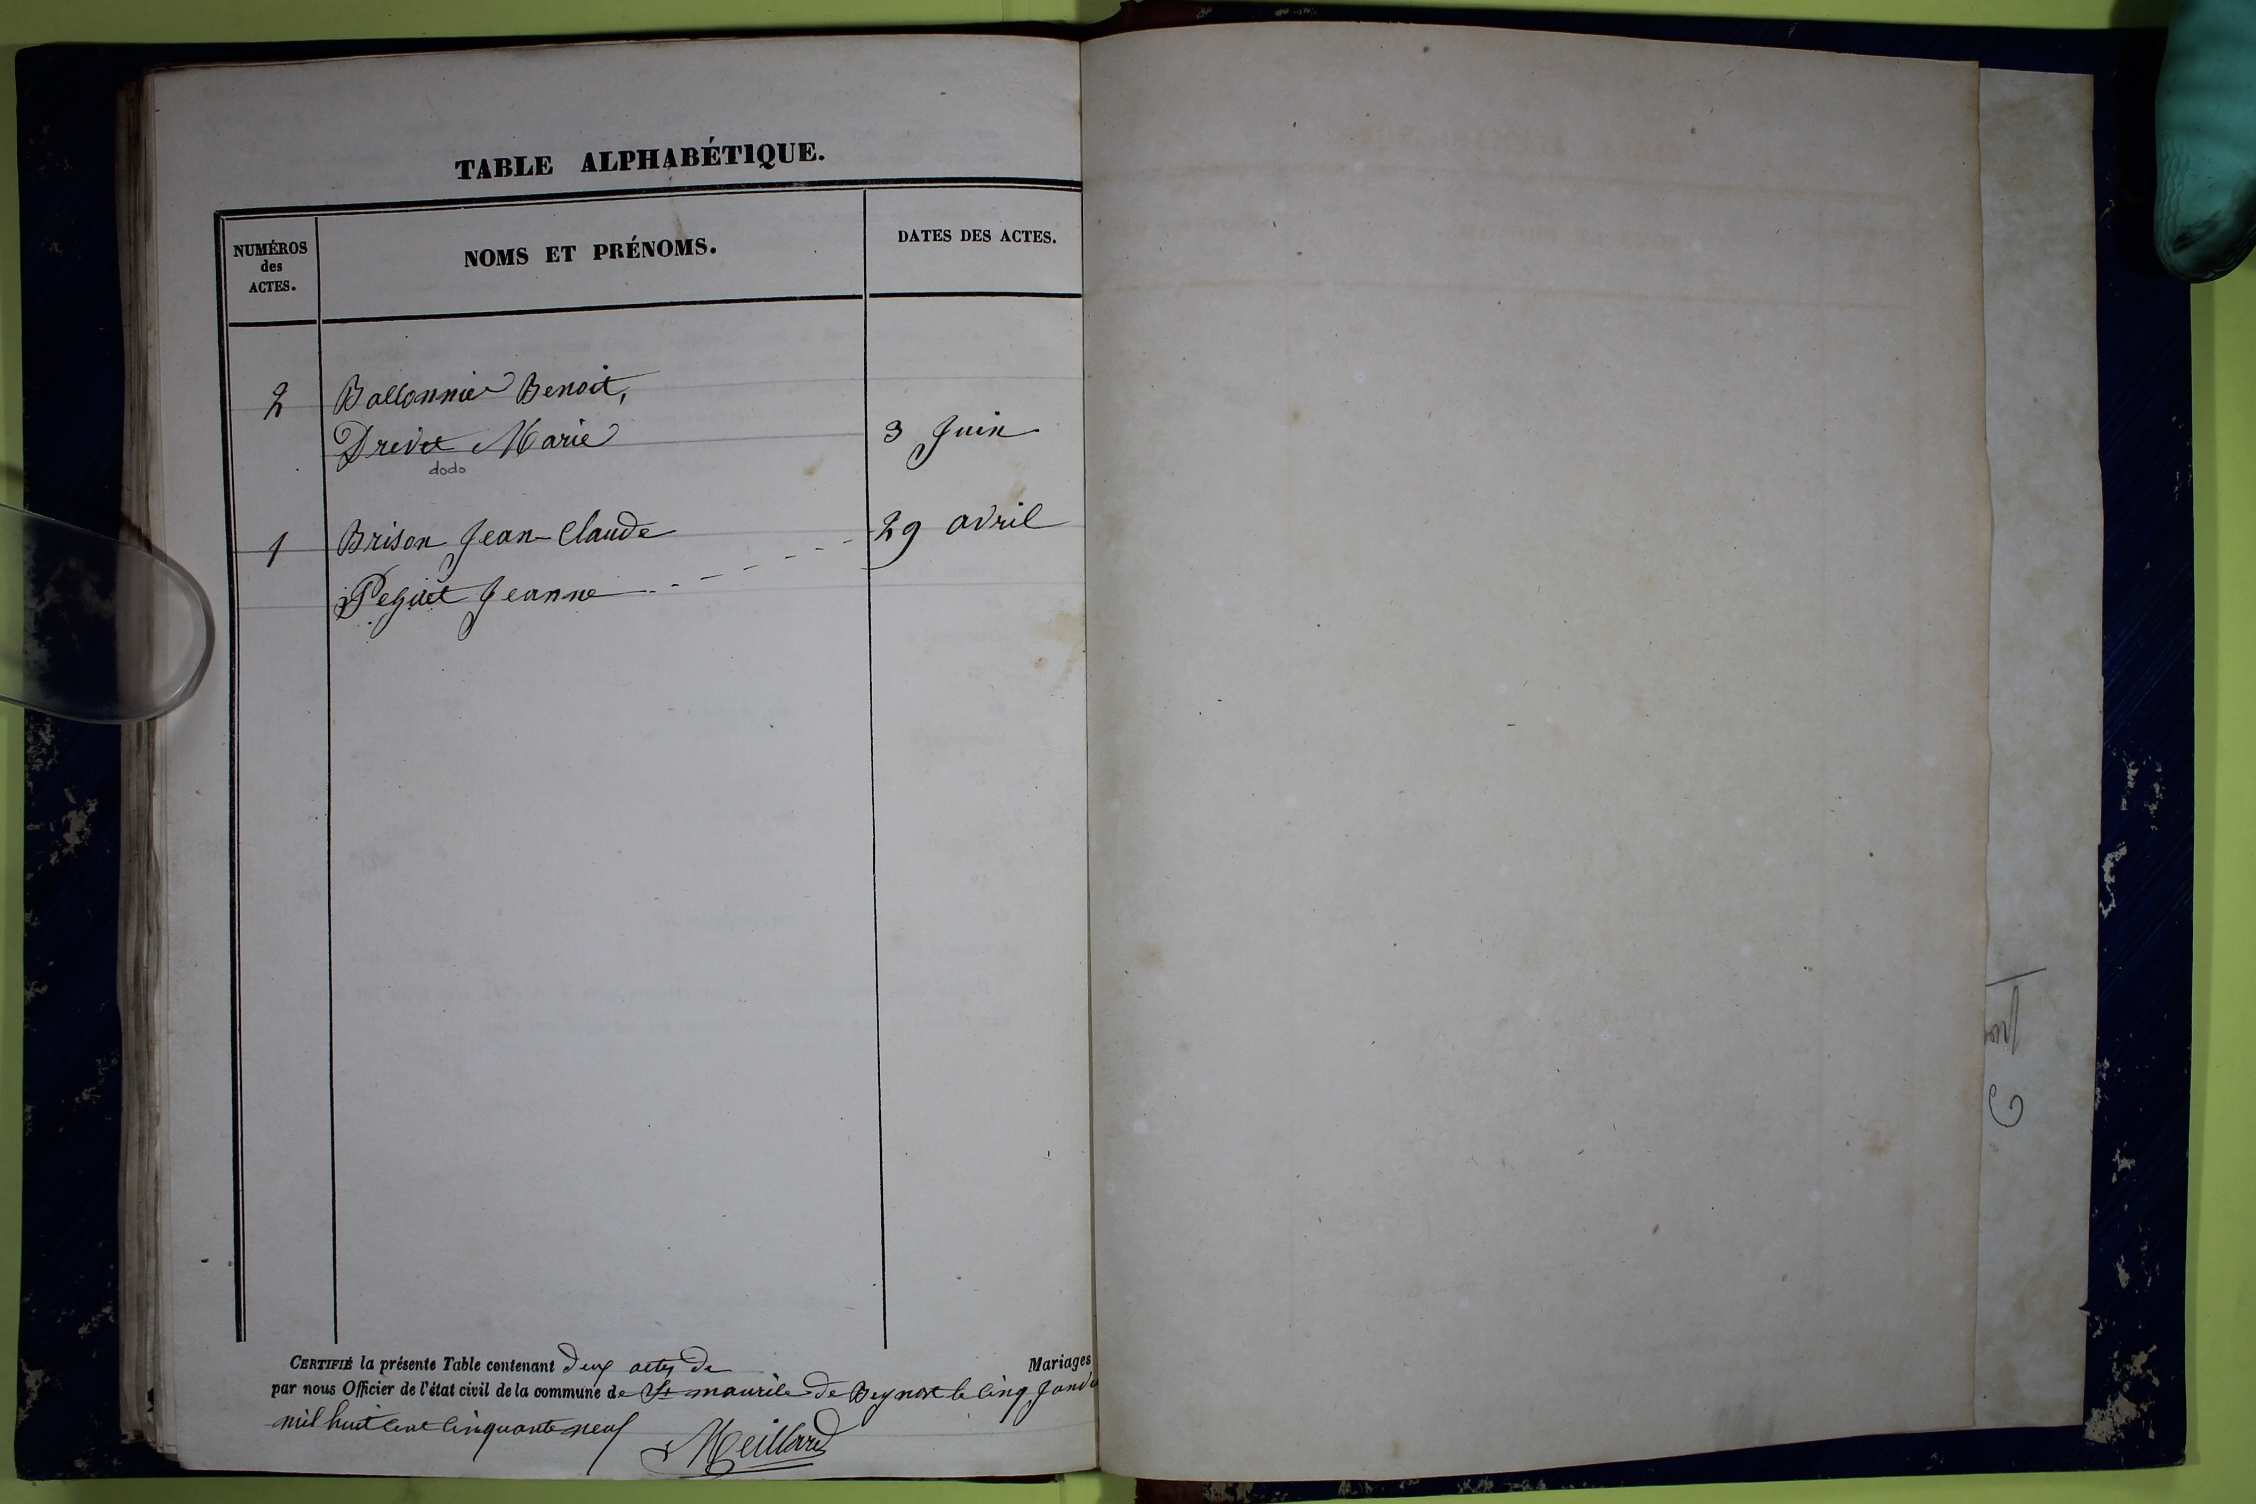 TABLE ALPHABÉTIQUE.
NUMÉROS
des
ACTES.
NOMS ET PRÉNOMS.
DATES DES ACTES.
2 Ballonnier Benoit,
Drevet Marie 3 Juin
dodo
1 Brison Jean-Claude 29 avril
Peguet Jeanne
CERTIFIÉ la présente Table contenant deux actes de Mariages
par nous Officier de l'état civil de la commune de St maurice de Beynost le cinq Janv
mil huit cent cinquante neuf
Meillard